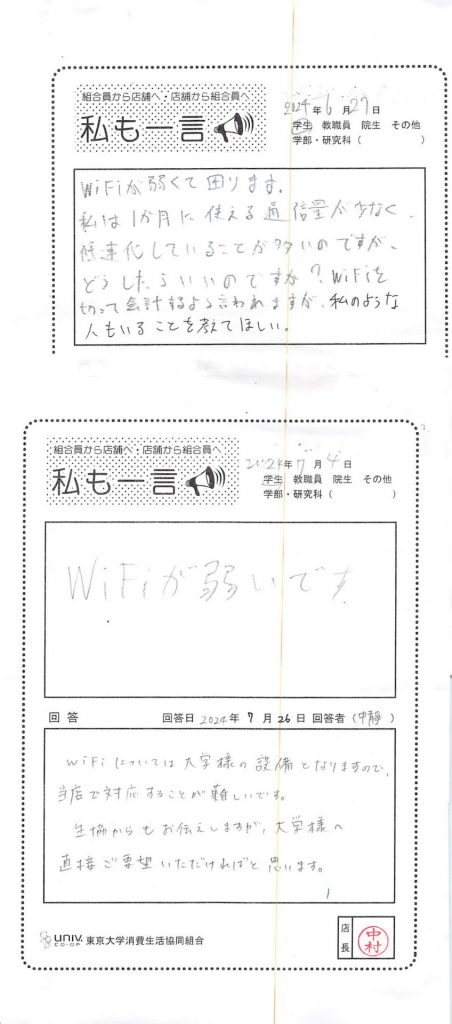 組合員から店舗へ・店舗から組合員へ
私も一言
2024年6月27日
学生 教職員 院生 その他
学部・研究科（　　　）
WiFiが弱くて困ります。
私は1か月に使える通信量が少なく、
低速化していることが多いのですが、
どうしたらいいのですか？WiFiを
切って会計するよう言われますが、私のような
人もいることを教てほしい。
組合員から店舗へ・店舗から組合員へ
私も一言
2024年7月4日
学生 教職員 院生 その他
学部・研究科（　　　）
WiFiが弱いです
回答 回答日 2024年 7月 26日 回答者（中靜）
WiFiについては大学様の設備となりますので、
当店で対応することが難しいです。
生協からもお伝えしますが、大学様へ
直接ご要望いただければと思います。
1
UNIV. CO-OP 東京大学消費生活協同組合
店長 中村